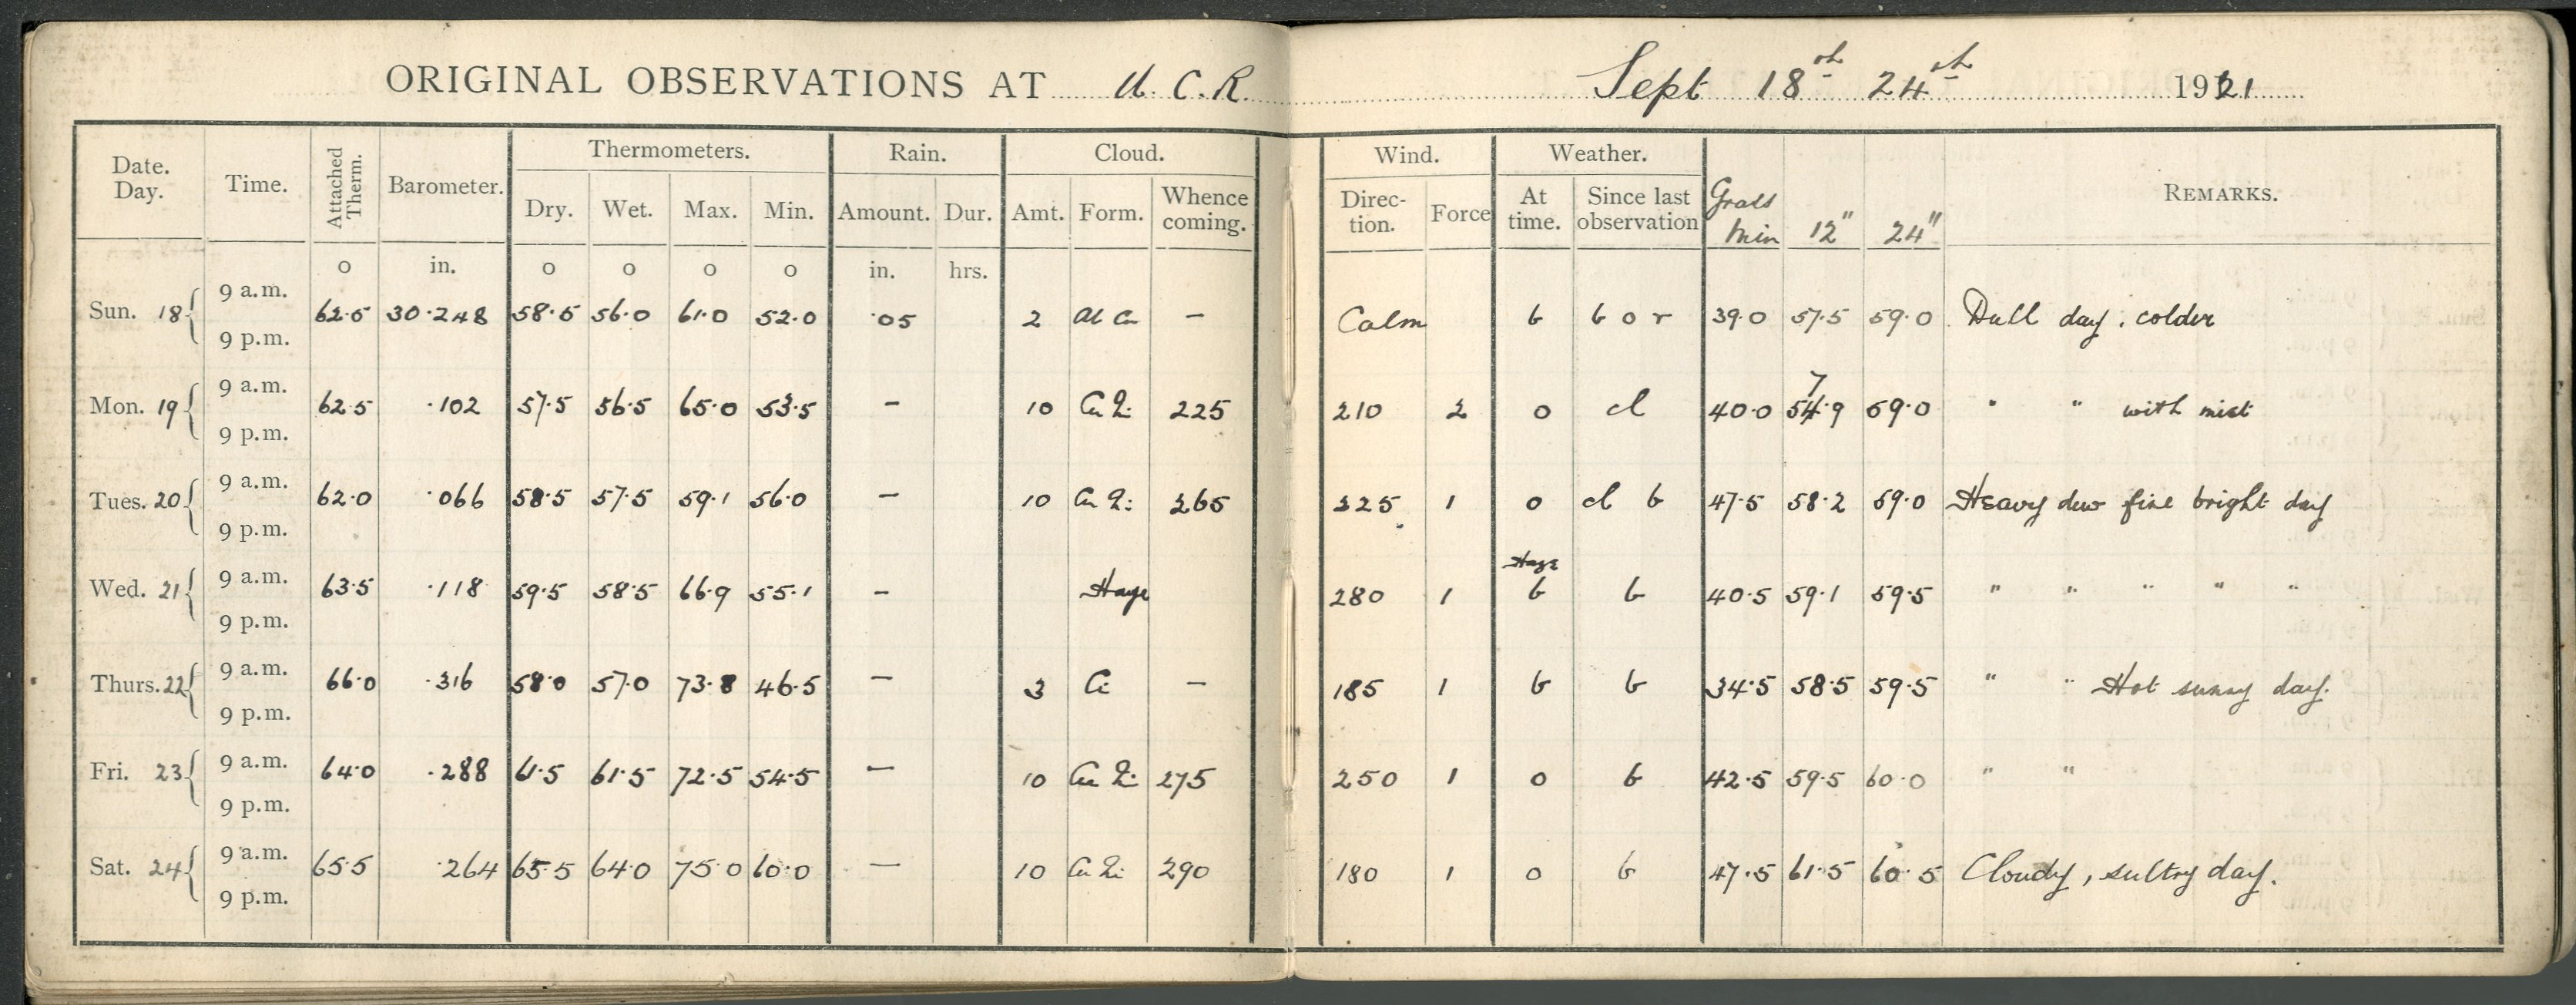 ORIGINAL OBSERVATIONS AT U. C. R. Sept 18th 24th 1921
Date. Day. Time. Attached Therm. Barometer. Thermometers. Rain. Cloud. Wind. Weather. Grass min 12" 24" REMARKS.
Dry. Wet. Max. Min. Amount. Dur. Amt. Form. Whence coming. Direc- tion. Force At time. Since last observation
o in. o o o o in. hrs.
9 a.m.
Sun. 18 62.5 30.248 58.5 56.0 61.0 52.0 .05 2 – Calm b b o r 39.0 57.5 59.0 Dull day. colder
9 p.m.
9 a.m.
7
Mon. 19 62.5 .102 57.5 56.5 65.0 53.5 – 10 225 210 2 o cl 40.0 54.9 59.0 " " with mist
9 p.m.
9 a.m.
Tues. 20 62.0 .066 58.5 57.5 59.1 56.0 – 10 265 225 1 o cl b 47.5 58.2 59.0 Heavy dew fine bright day
9 p.m.
Haze
9 a.m.
Wed. 21 63.5 .118 59.5 58.5 66.9 55.1 – Haze 280 1 b b 40.5 59.1 59.5 " " " " "
9 p.m.
9 a.m.
Thurs. 22 66.0 .316 58.0 57.0 73.8 46.5 – 3 Ci – 185 1 b b 34.5 58.5 59.5 " " Hot sunny day.
9 p.m.
9 a.m.
Fri. 23 64.0 .288 61.5 61.5 72.5 54.5 – 10 275 250 1 o b 42.5 59.5 60.0 " "
9 p.m.
9 a.m.
Sat. 24 65.5 .264 65.5 64.0 75.0 60.0 – 10 290 180 1 o b 47.5 61.5 60.5 Cloudy, sultry day.
9 p.m.